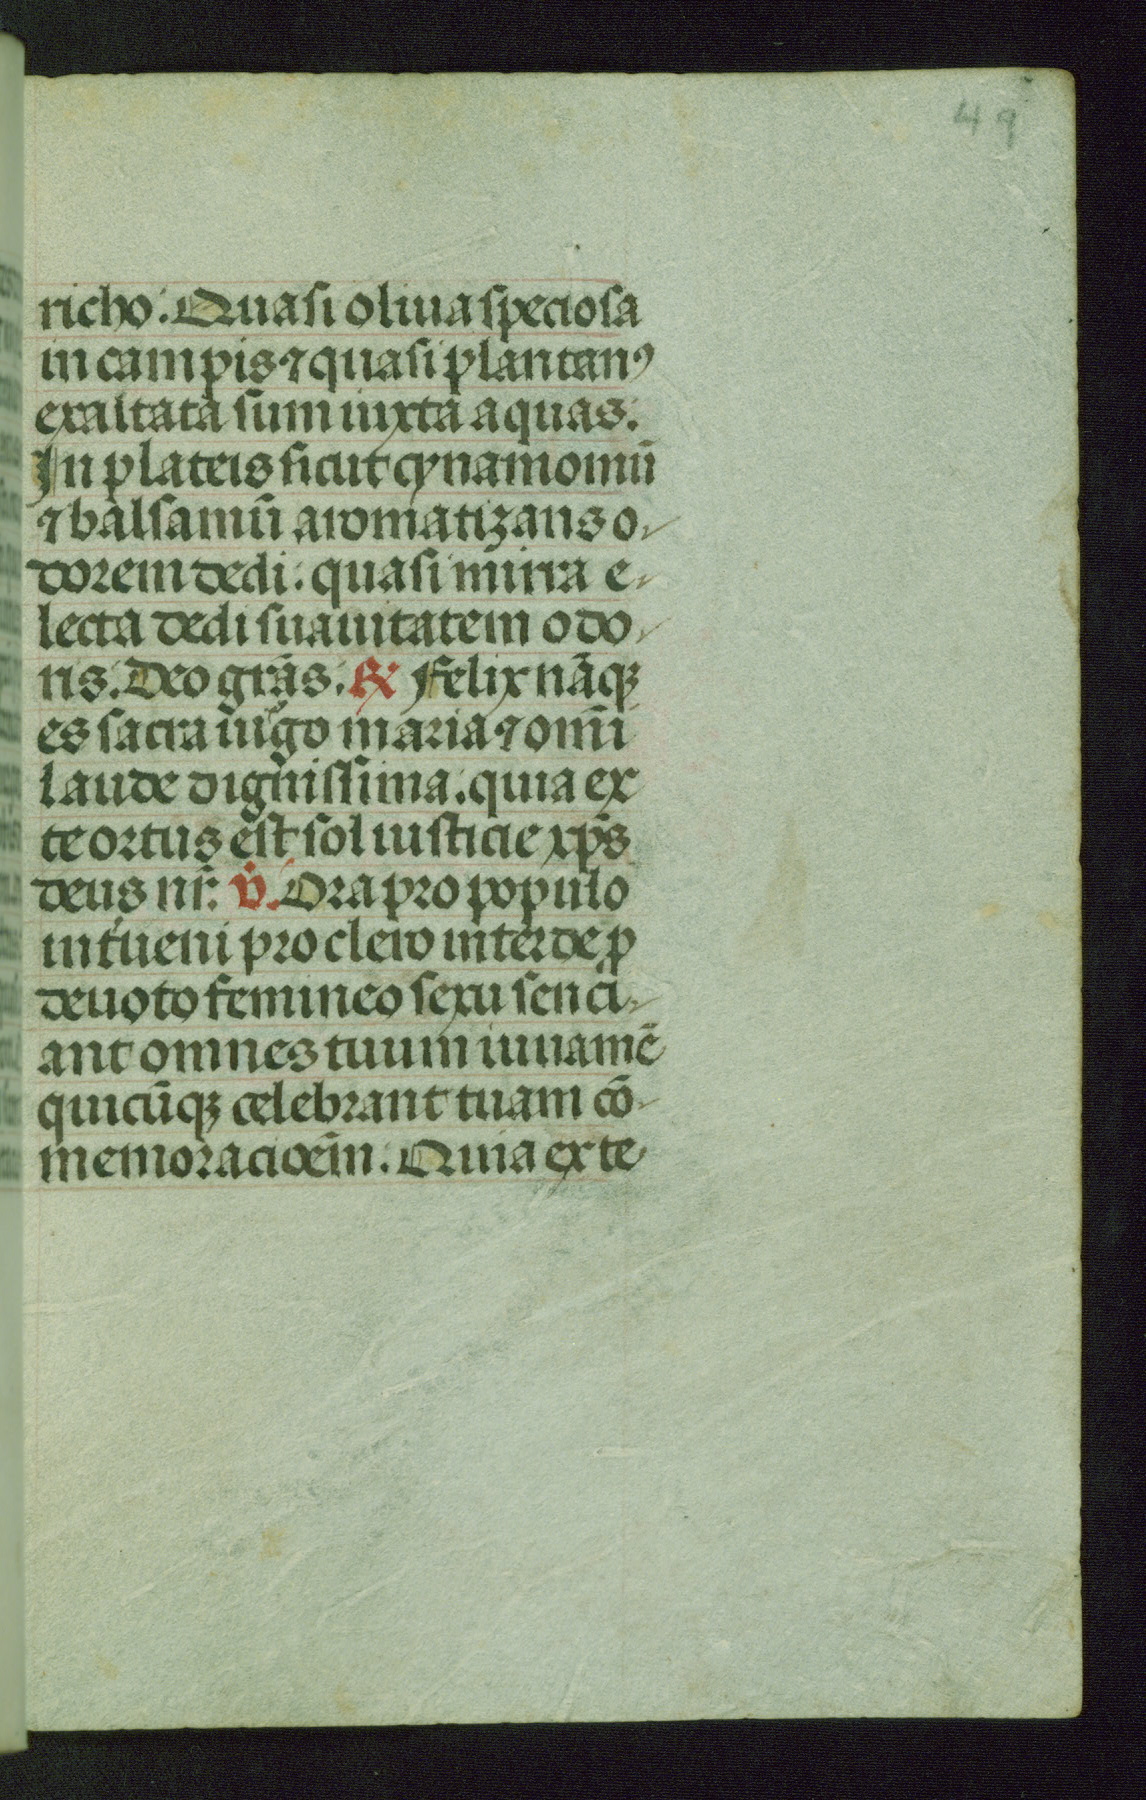 49
richo. Quasi oliua speciosa
in campis ⁊ quasi plantanꝰ
exaltata sum iuxta aquas.
In plateis sicut cynamomū
⁊ balsamū aromatizans o-
dorem dedi: quasi mirra e-
lecta dedi suauitatem odo-
ris. Deo grās. ℟ Felix nāqꝫ
es sacra uͥgo maria ⁊ omī
laude dignissima. quia ex
te ortus est sol iusticie xp̄s
deus nr̄. ℣. Ora pro populo
int̄ueni pro clero interde p̄
deuoto femineo sexu senci-
ant omnes tuum iuuamē
quicūqꝫ celebrant tuam cō-
memoracioēm. Quia ex te